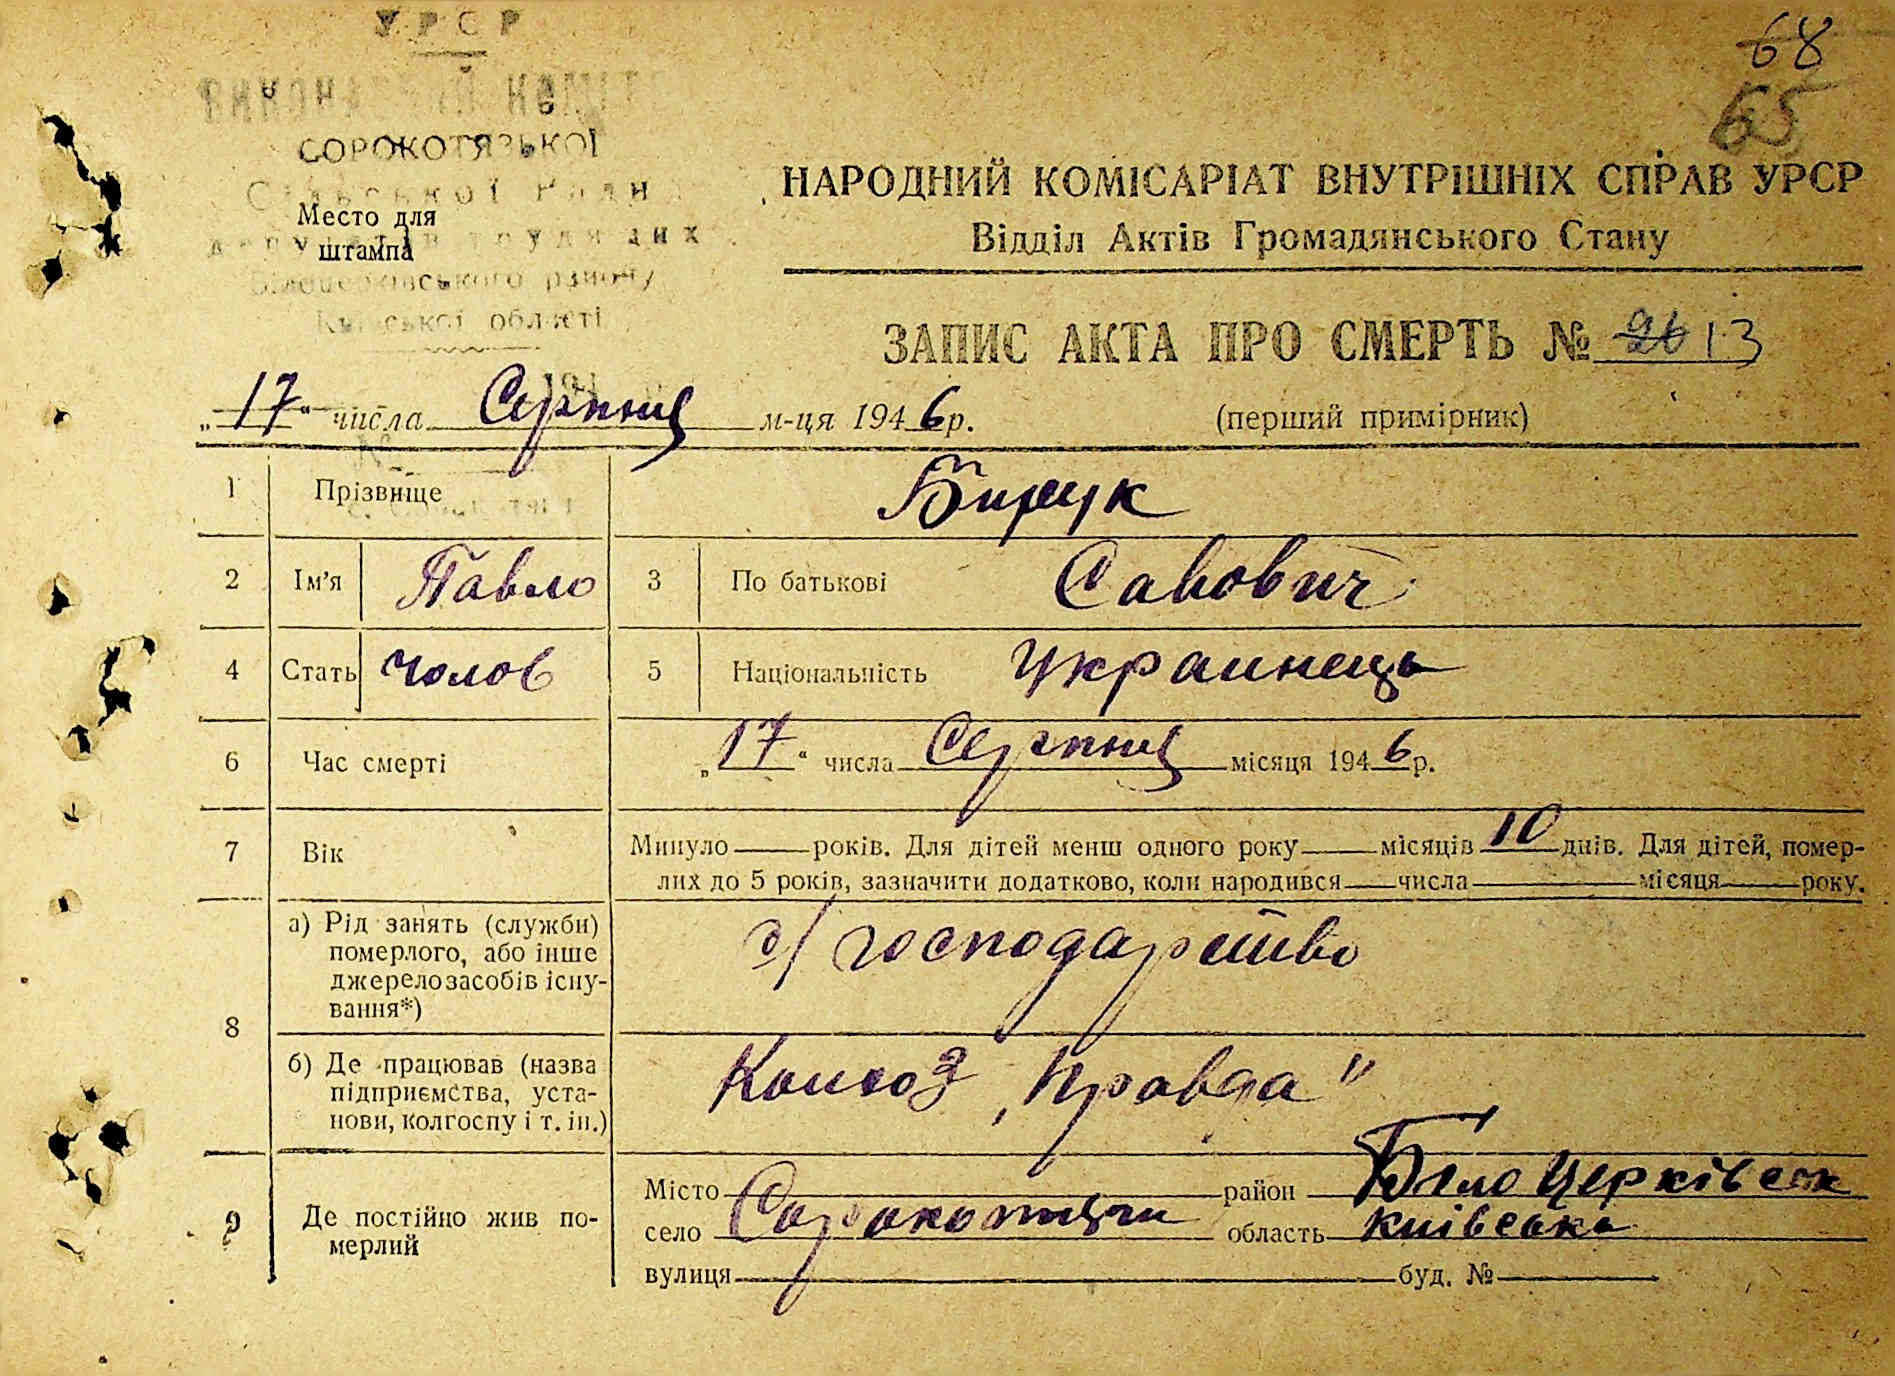 УРСР
68
65
СОРОКОТЯЗЬКОЇ
Сільської Ради
Место для
штампа
депутатів трудящих
Білоцерківського району
Київської області
НАРОДНИЙ КОМІСАРІАТ ВНУТРІШНІХ СПРАВ УРСР
Відділ Актів Громадянського Стану
ЗАПИС АКТА ПРО СМЕРТЬ № 26 13
„17“ числа Серпня м-ця 1946 р.
(перший примірник)
1 Прізвище Бирук
2 Ім'я Павло 3 По батькові Савович
4 Стать чолов 5 Національність Украинець
6 Час смерті „17“ числа Серпня місяця 1946 р.
7 Вік Минуло років. Для дітей менш одного року місяців 10 днів. Для дітей, помер-
лих до 5 років, зазначити додатково, коли народився числа місяця року.
8 а) Рід занять (служби)
померлого, або інше
джерело засобів існу-
вання*)
с/господарство
б) Де працював (назва
підприємства, уста-
нови, колгоспу і т. ін.)
Колхоз „Правда"
9 Де постійно жив по-
мерлий
Місто район БілоЦерківськ
село Сорокотяги область Київська
вулиця буд. №